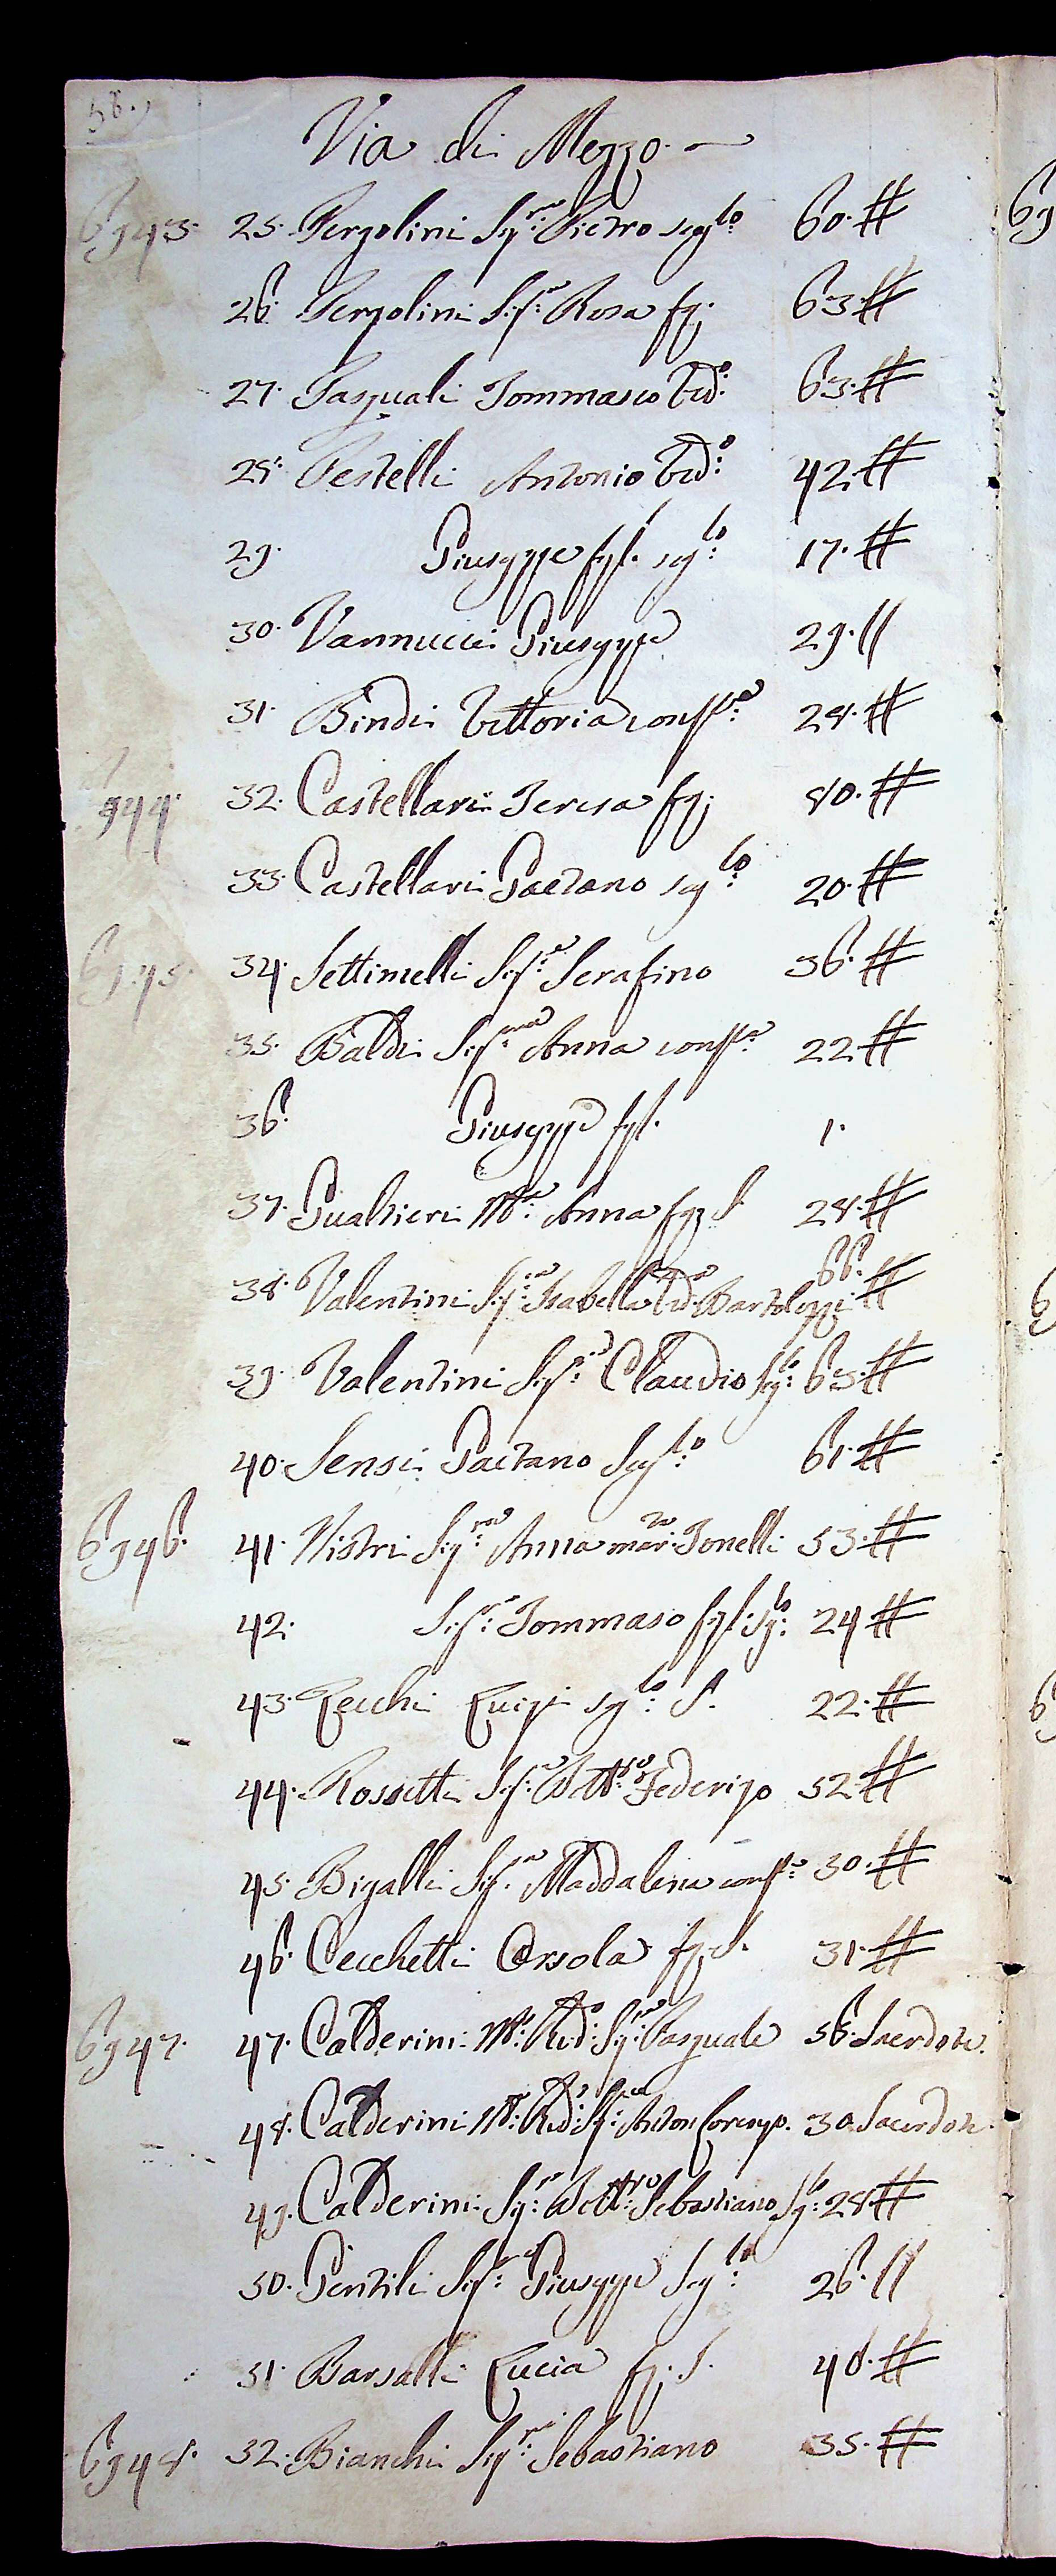 58.
Via di Mezzo.
6943. 25. Perzolini Sig.re Pietro scg.lo 60. #
26. Perzolini Sig.ra Rosa fg. 63. #
27. Pasquali Tommaso Ved.o 63. #
28. Pestelli Antonio Ved.o 42. #
29. Giuseppe figl. scg.lo 17. #
30. Vannucci Giuseppe 29. //
31. Bindi Vittoria cons.te 28. #
6944. 32. Castellari Teresa fg. 80. #
33. Castellari Gaetano scg.lo 20. #
6945. 34. Settimelli Sig.re Serafino 36. #
35. Baldi Sig.ra Anna cons.te 22. #
36. Giuseppe figl. 1.
37. Gualtieri M.a Anna fg. S. 28. #
38. Valentini Sig.ra Isabella Ved.a Bartolozzi 66. #
39. Valentini Sig.re Claudio Scg.lo 63. #
40. Sensi Gaetano Scg.lo 61. #
6946. 41. Nistri Sig.ra Anna mar.ta Tonelli 53. #
42. Sig.re Tommaso figl. Scg.lo 24 #
43. Zecchi Luigi scg.lo S. 22. #
44. Rossetti Sig.re Dott.re Federigo 52. #
45. Bigalli Sig.ra Maddalena cons.te 30. #
46. Cecchetti Orsola fg. S. 31. #
6947. 47. Calderini M.o Rev.do Sig.re Pasquale 56. Sacerdote.
48. Calderini M.o Rev.do Sig.re Anton Lorenzo. 30 Sacerdote.
49. Calderini Sig.re Dott.re Sebastiano Scg.lo 28. #
50. Gentili Sig.re Giuseppe Scg.lo 26. //
51. Barsalli Lucia fg. S. 40. #
6948. 52. Bianchi Sig.re Sebastiano 35. #